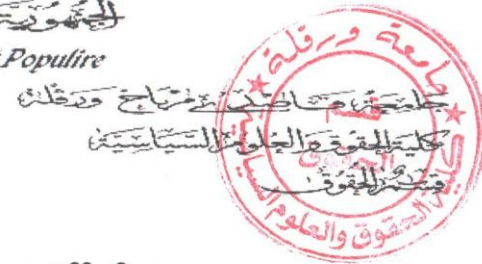 الجمهورية
Populire
جامعة قاصدي مرباح ورقلة
كلية الحقوق والعلوم السياسية
قسم الحقوق
جامعة ورقلة
قسم
الحقوق
كلية الحقوق والعلوم السياسية